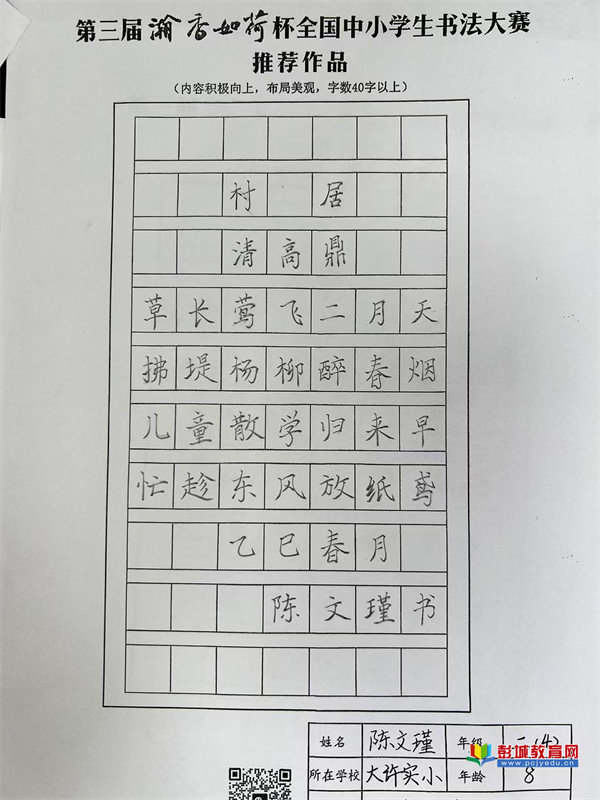 第三届瀚香如荷杯全国中小学生书法大赛
推荐作品
（内容积极向上，布局美观，字数40字以上）
村居
清高鼎
草长莺飞二月天
拂堤杨柳醉春烟
儿童散学归来早
忙趁东风放纸鸢
乙巳春月
陈文瑾书
姓名 陈文瑾 年级 (4)
所在学校 大许实小 年龄 8
彭城教育网
www.pcjyedu.cn